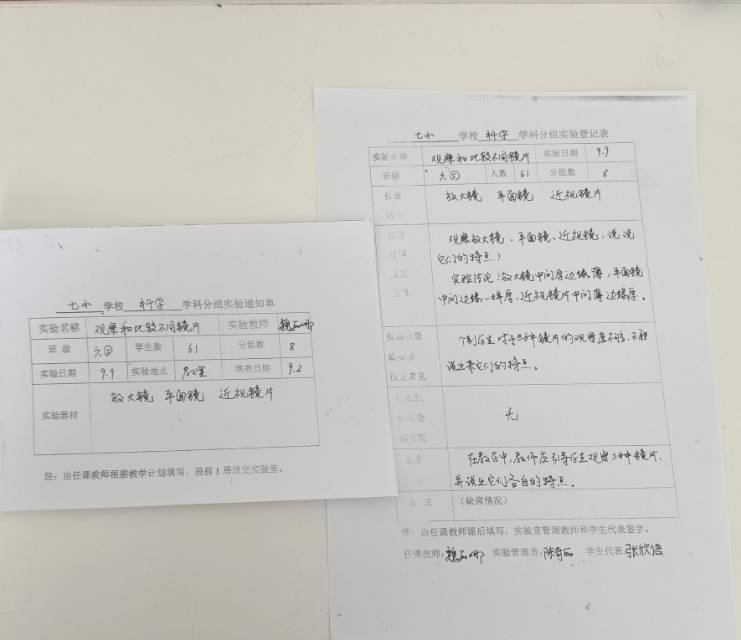 七小 学校 科学 学科分组实验通知单
实验名称 观察和比较不同镜片 实验教师
班级 六 学生数 61 分组数 8
实验日期 9.9 实验地点 教室 填表日期 9.2
实验器材 放大镜 平面镜 近视镜片
注：由任课教师根据教学计划填写，提前1周送交实验室。
七小 学校 科学 学科分组实验登记表
实验名称 观察和比较不同镜片 实验日期 9.9
班级 六 人数 61 分组数 8
放大镜 平面镜 近视镜片
观察放大镜、平面镜、近视镜，说说
它们的特点。
实验结论：放大镜中间厚边缘薄，平面镜
中间边缘一样厚，近视镜片中间薄边缘厚。
个别学生对于三种镜片的观察还不够，不能
说出来它们的特点。
无
在教学中，教师应引导学生观察三种镜片，
并说出它们各自的特点。
(缺席情况)
由任课教师课后填写，实验室管理教师和学生代表签字。
任课教师： 实验管理员： 学生代表：张欣语